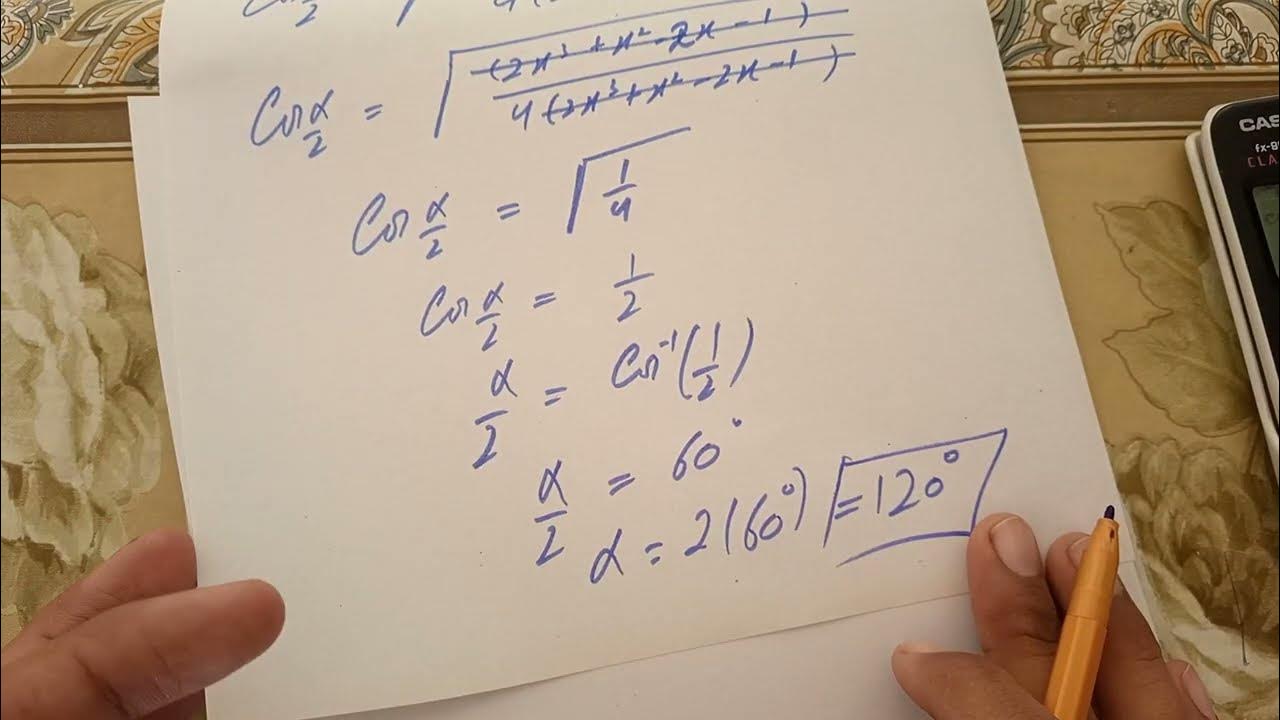 Cos α/2
Cos α/2 = √((2x³ + x² - 2x - 1) / 4(2x³ + x² - 2x - 1))
Cos α/2 = √(1/4)
Cos α/2 = 1/2
α/2 = Cos⁻¹(1/2)
α/2 = 60°
α = 2(60°) = 120°
CAS
fx-8
CLA